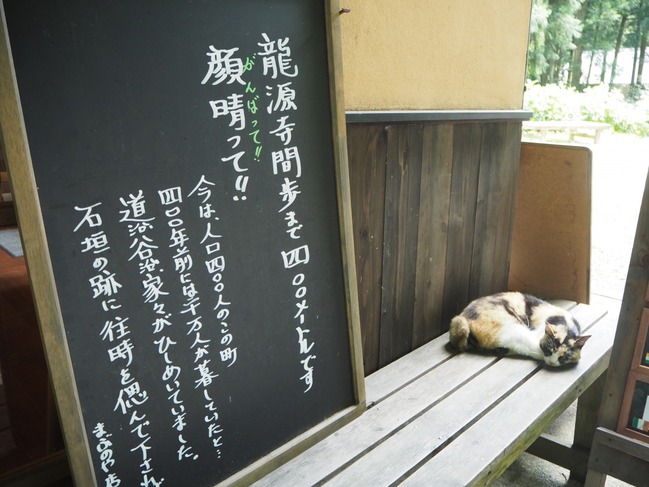 龍源寺間歩まで四〇〇メートルです
がんばって!!
顔晴って!!
今は、人口四〇〇人のこの町
四〇〇年前には二十万人が暮していたと…
道沿谷沿家々がひしめいていました。
石垣の跡に往時を偲んで下され